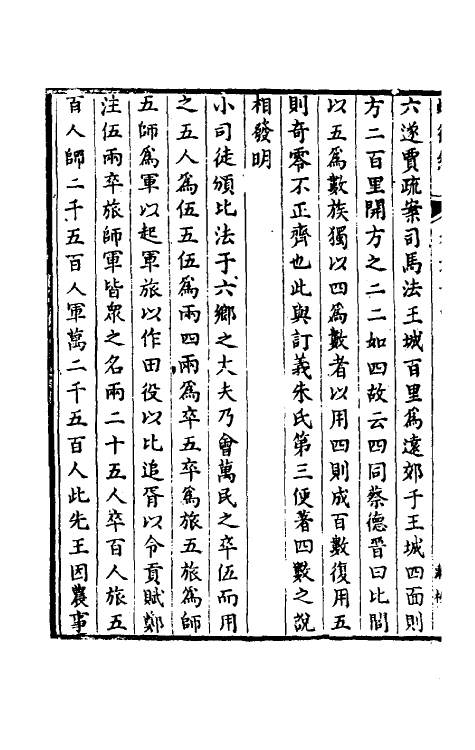 六遂賈疏案司馬法王城百里爲遠郊于王城四面則
方二百里開方之二二如四故云四同蔡德晋曰比閭
以五爲數族獨以四爲數者以用四則成百數復用五
則奇零不正齊也此與訂義朱氏第三便著四數之說
相發明
小司徒頒比法于六鄉之大夫乃會萬民之卒伍而用
之五人爲伍五伍爲兩四兩爲卒五卒爲旅五旅爲師
五師爲軍以起軍旅以作田役以比追胥以令貢賦鄭
注伍兩卒旅師軍皆衆之名兩二十五人卒百人旅五
百人師二千五百人軍萬二千五百人此先王因農事